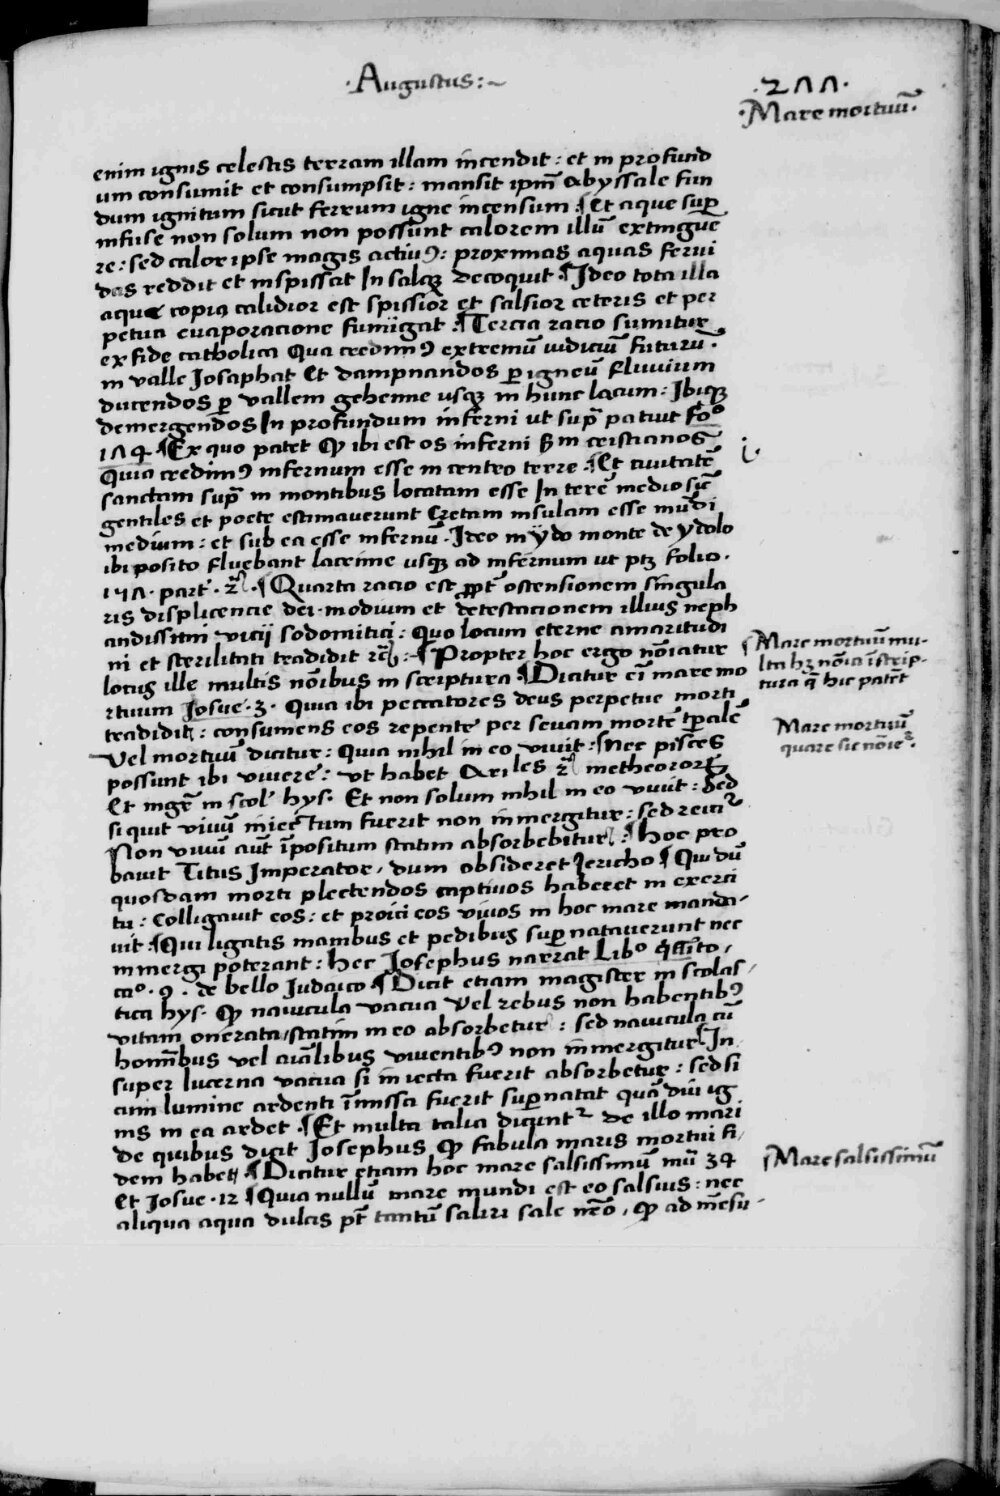 ·Augustus:~
·2ΛΛ·
·Mare mortuū·
enim ignis celestis terram illam incendit: et in profund
um consumit et consumpsit: mansit ipm̄ abyssale fun
dum ignitum sicut ferrum igne incensum ¶ Et aque sup̄
infuse non solum non possunt calorem illū extingue
re: sed calor ipse magis activꝰ: proximas aquas fervi
das reddit et inspissat In salqꝫ decoquit ¶ Ideo tota illa
aque copia calidior est spissior et salsior ceteris et per
petua evaporacione fumigat ¶ Tercia racio sumitur
ex fide catholica Qua credimꝰ extremū iudiciū futurū·
in valle Josaphat Et dampnandos ꝑ igneū fluvium
ducendos ꝑ vallem gehenne usqꝫ in hunc lacum: Ibiqꝫ
demergendos In profundum inferni ut sup̄ patuit foº
1Λ4· ¶ Ex quo patet ꝙ ibi est os inferni ẜm cristianos
Quia credimꝰ infernum esse in centro terre ¶ Et civitatē
sanctam sup̄ in montibus locatam esse In terē medio sic̄
gentiles et poete estimaverunt Cretam insulam esse mūdi
medium: et sub ea esse infernū· Ideo in ydo monte de ydolo
ibi posito fluebant lacrime usqꝫ ad infernum ut ptꝫ folio·
1ΛΛ· part· 2ͣ· ¶ Quarta racio est ꝓpt̄ ostensionem singula
ris displicencie dei· modium et detestacionem illius neph
andissimi vicij sodomitici: Quo locum eterne amaritudi
ni et sterilitati tradidit rc̄: ¶ Propter hoc ergo nōiatur
locus ille multis nōibus in scriptura ¶ Dicatur eī mare mo
rtuum Josue· 3· Quia ibi peccatores deus perpetue morti
tradidit: consumens eos repente per sevam mortē tp̄alē
Vel mortuū dicatur: Quia nihil in eo vivit ¶ Nec pisces
possunt ibi vivere: ut habet Ari les 2ͣ metheororꝝ
Et mgr̄ in scol' hys· Et non solum nihil in eo vivit: Sed
si quit vivū iniectum fuerit non inmergitur: sed reicit͛
Non vivū aut̄ īpositum statim absorbebitur: ¶ Hoc pro
bavit Titus Imperator, dum obsideret Jericho ¶ Qui dū
quosdam morti plectendos captivos haberet in exerci
tu: Colligavit eos: et proici eos vivos in hoc mare manda-
vit ¶ Qui ligatis manibus et pedibus sup̄natauerunt nec
inmergi poterant: hec Josephus narrat Libº
caº· 9· de bello Judaico ¶ Dicit etiam magister in scolas/
tica hys· ꝙ navicula vacua Vel rebus non habentibꝰ
vitam onerata/statim in eo absorbetur: sed navicula cū
homībus vel aīalibus viventibꝰ non inmergitur ¶ In
super lucerna vacua si in iecta fuerit absorbetur: sed si
cum lumine ardenti īmissa fuerit sup̄natat quādiu ig
nis in ea ardet ¶ Et multa talia dicunt͛ de illo mari
de quibus dicit Josephus ꝙ fabula maris mortui fi/
dem habet ¶ Dicitur etiam hoc mare salsissimū mū 34
Et Josue· 12 ¶ Quia nullū mare mundi est eo salsius: nec
aliqua aqua dulcis pt̄ tantū saliri sale ꝙ ad mēsu-
i·
¶ Mare mortuū mu-
lta hꝫ nōia ī scrip-
tura q̄ hic patēt
Mare mortuū
quare sic nōie͛·
¶ Mare salsissimū